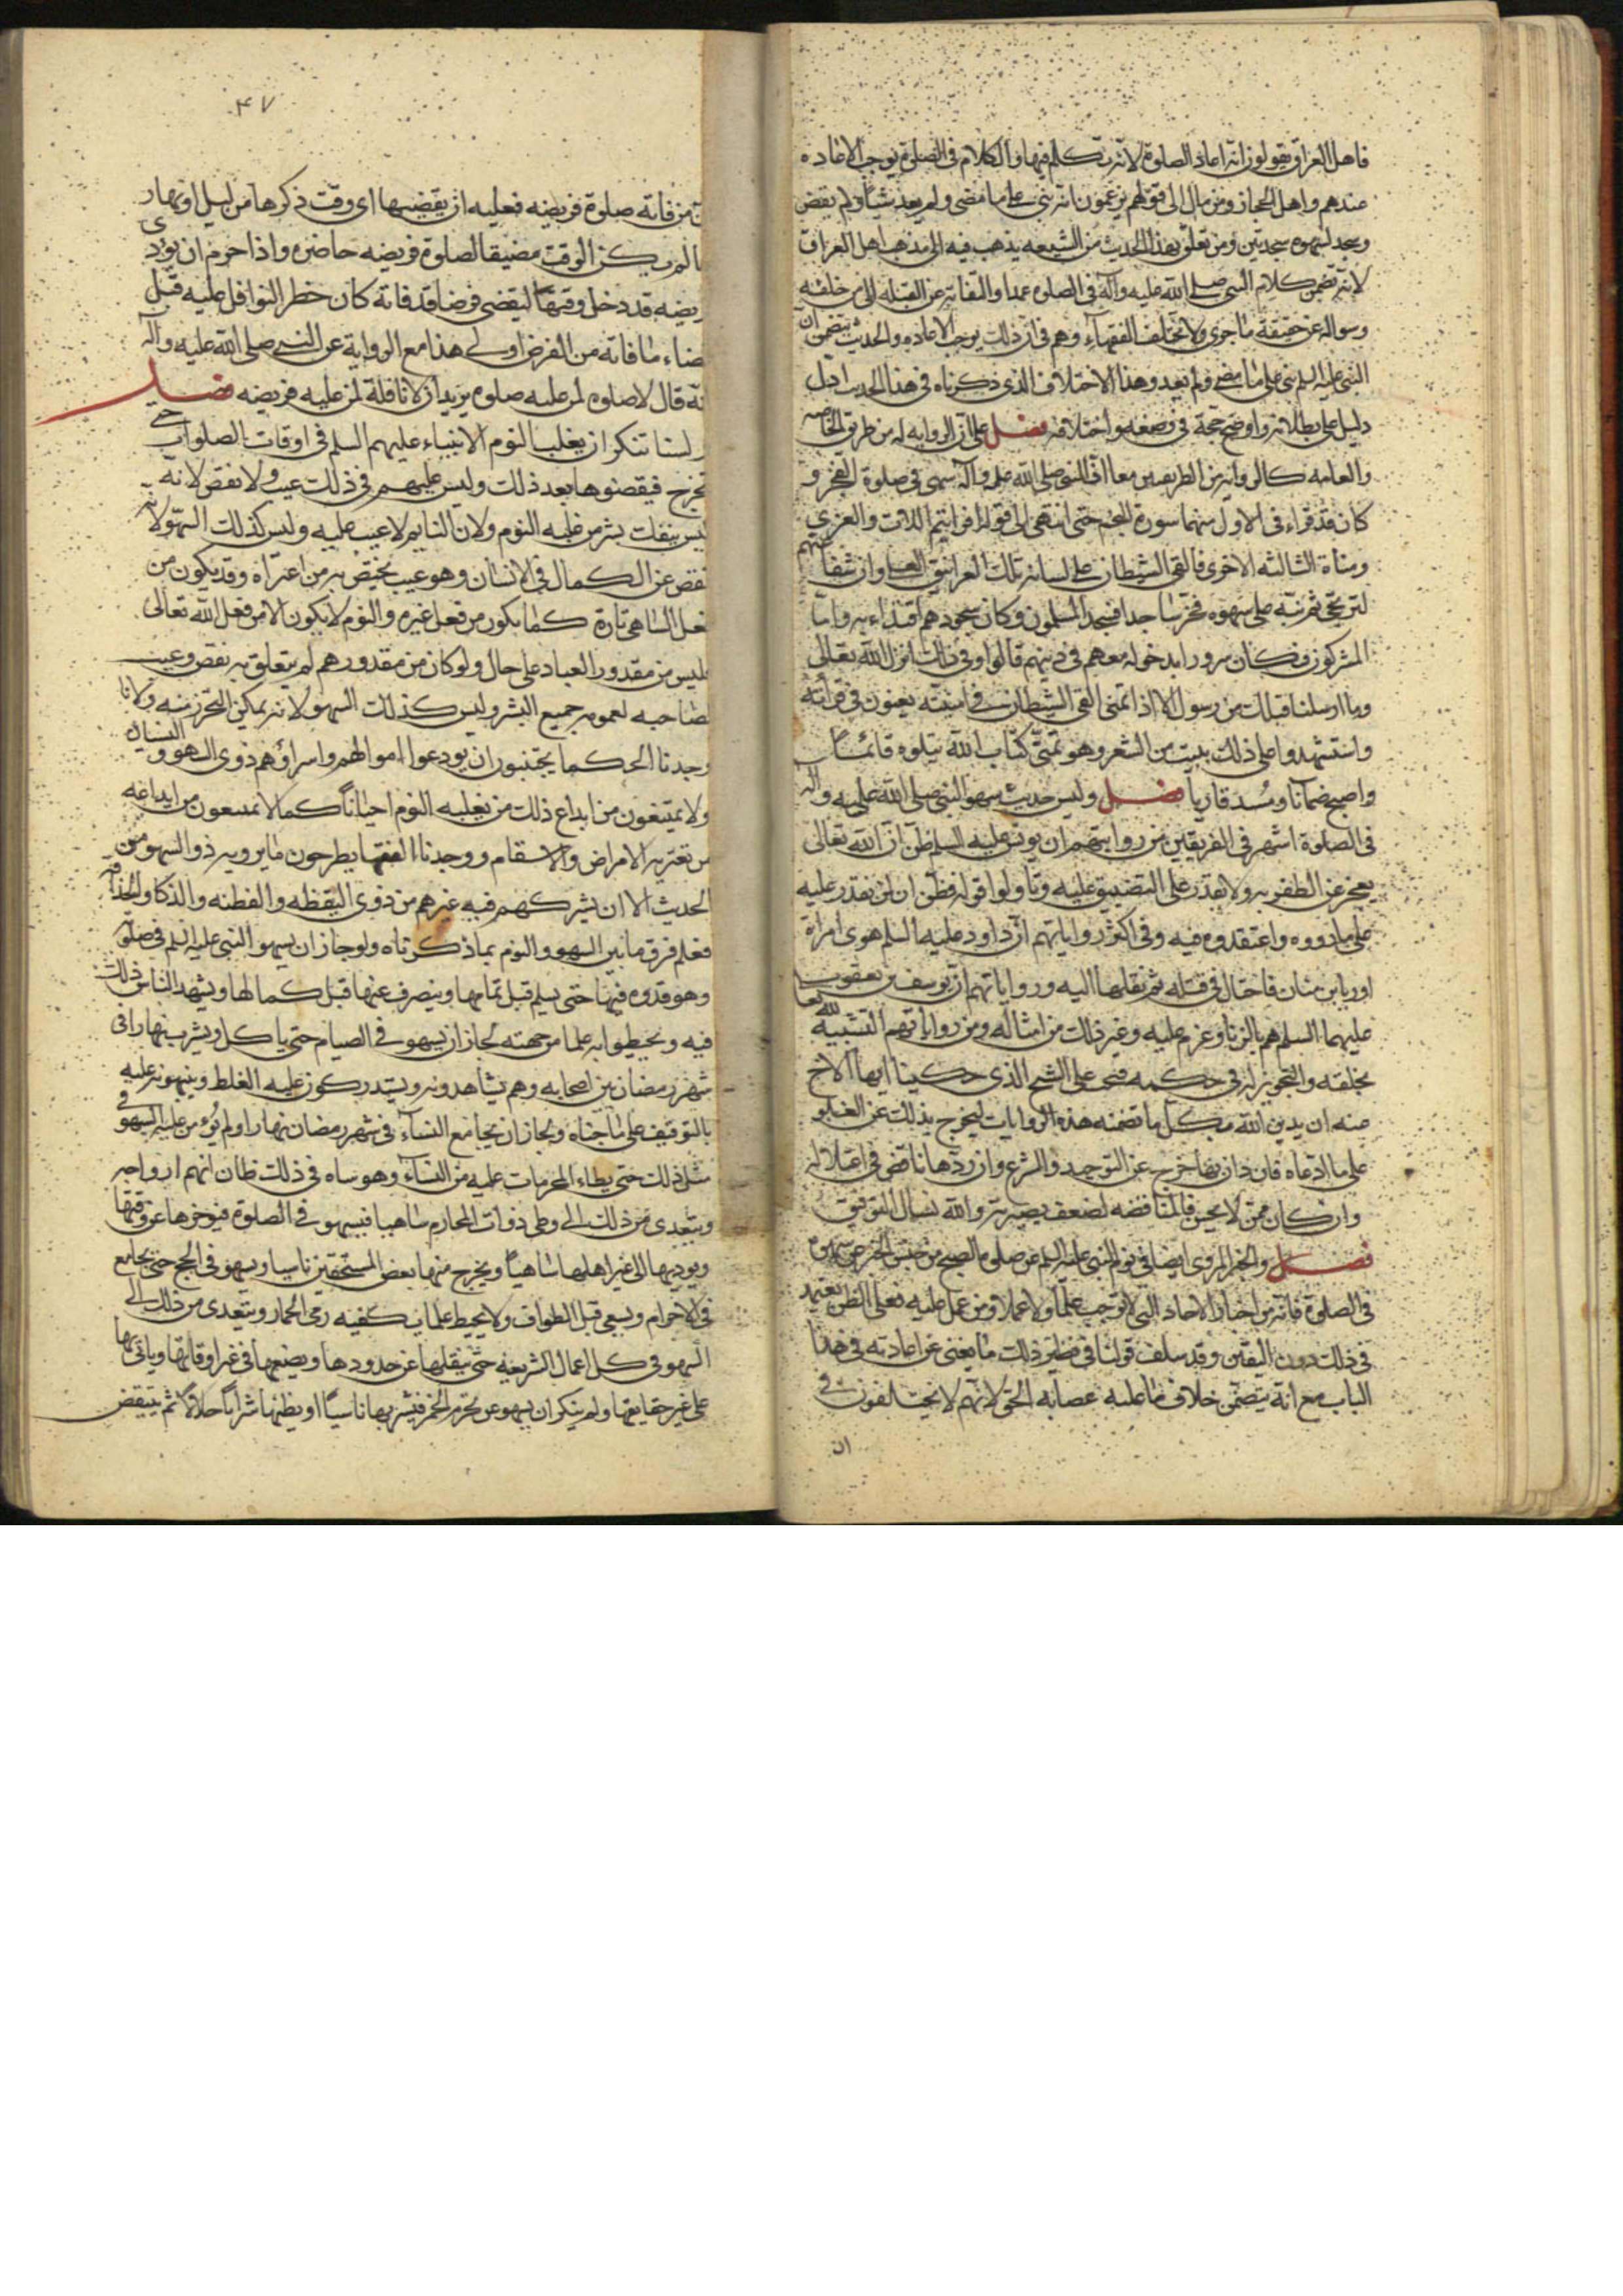 فاهل العراق يقولون انه اعاد الصلوة لانه تكلم فيها والكلام فى الصلوة يوجب الاعاده
عندهم واهل الحجاز ومن مال الى قولهم يزعمون انه بنى على ما مضى ولم يعد شيئا ولم يقض
وسجد لسهوه سجدتين ومن تعلق بهذا الحديث من الشيعه يذهب فيه الى مذهب اهل العراق
لانه تضمن كلام النبى صلى الله عليه وآله فى الصلوه عمدا والتفاته عن القبله الى من خلفه
وسواله عن حقيقة ما جرى ولا تختلف الفقهاء وهم فى ان ذلك يوجب الاعاده والحديث يتضمن ان
النبى عليه السلم بنى على ما مضى ولم يعد وهذا الاختلاف الذى ذكرناه فى هذا الحديث ادل
دليل على بطلانه واوضح حجة فى وضعه واختلاقه فصل على ان الروايه له من طريق الخاصه
والعامه كالروايه من الطريقين معا ان النبى صلى الله عليه وآله سهى فى صلوة الفجر و
كان قد قراء فى الاول منهما سورة النجم حتى انتهى الى قوله افرايتم اللات والعزى
ومناة الثالثه الاخرى فالقى الشيطان على لسانه تلك الغرانيق العلى وان شفاعتهم
لترتجى ثم نبه على سهوه فخر ساجدا فسجد المسلمون وكان سجودهم اقتداء به واما
المشركون فكان سرورا بدخوله معهم فى دينهم قالوا وفى ذلك انزل الله تعالى
وما ارسلنا قبلك من رسول الا اذا تمنى القى الشيطان فى امنيته يعنون فى قراءته
واستشهدوا على ذلك ببيت من الشعر وهو تمنى كتاب الله يتلوه قائما
واصبح ضمآنا ومسد قاريا فصل وليس حديث سهو النبى صلى الله عليه وآله
فى الصلوة اشهر فى الفريقين من روايتهم ان يونس عليه السلم ظن ان الله تعالى
يعجز عن الظفر به ولا يقدر على التضييق عليه وتأولوا قوله فظن ان لن نقدر عليه
على ما رووه واعتقدوه فيه وفى اكثر رواياتهم ان داود عليه السلم هوى امراة
اوريا بن حنان فاحتال فى قتله ثم نقلها اليه ورواياتهم ان يوسف بن يعقوب
عليهما السلم هم بالزنا وعزم عليه وغير ذلك من امثاله ومن رواياتهم التشبيه لله تعا
بخلقه والتجويز له فى حكمه فيجب على الشيخ الذى حكينا ايها الاخ
عنه ان يدين الله بكل ما تضمنه هذه الروايات ليخرج بذلك عن الغلو
على ما ادعاه فان دان بها خرج عن التوحيد والشرع وان ردها ناقض فى اعتلاله
وان كان ممن لا يحسن فالمناقضه لضعف بصيرته والله نسال التوفيق
فصل والخبر المروى ايضا فى نوم النبى عليه السلم عن صلوة الصبح من جنس الخبر عن سهوه
فى الصلوة فانه من اخبار الاحاد التى لا توجب علما ولا عملا ومن عمل عليه فعلى الظن يعتمد
فى ذلك دون اليقين وقد سلف قولنا فى نظير ذلك ما يغنى عن اعادته فى هذا
الباب مع انه يتضمن خلاف ما عليه عصابه الحق لانهم لا يختلفون فى
ان
٤٧
من فاته صلوة فريضه فعليه ان يقضيها اى وقت ذكرها من ليل او نهار
مالم يكن الوقت مضيقا لصلوة فريضه حاضره واذا حرم ان يؤدى
فريضه قد دخل وقتها ليقضى فرضا قد فاته كان حظر النوافل عليه قبل
قضاء ما فاته من الفرض اولى هذا مع الرواية عن النبى صلى الله عليه وآله
انه قال لا صلوه لمن عليه صلوه يريد ان لا نافلة لمن عليه فريضه فصل
ولسنا ننكر ان يغلب النوم الانبياء عليهم السلم فى اوقات الصلوات حتى
تخرج فيقضوها بعد ذلك وليس عليهم فى ذلك عيب ولا نقص لانه
ليس ينفك بشر من غلبه النوم ولان النايم لا عيب عليه وليس كذلك السهو لانه
نقص عن الكمال فى الانسان وهو عيب يختص به من اعتراه وقد يكون من
فعل الساهى تارة كما يكون من فعل غيره والنوم لا يكون الا من فعل الله تعالى
فليس من مقدور العباد على حال ولو كان من مقدورهم لم يتعلق به نقص وعيب
لصاحبه لعمومه جميع البشر وليس كذلك السهو لانه يمكن التحرز منه ولانا
وجدنا الحكما يجتنبون ان يودعوا اموالهم واسرارهم ذوى السهو والنسيان
ولا يمتنعون من ايداع ذلك من يغلبه النوم احيانا كما لا يمتنعون من ايداعه
من تعتريه الامراض والاسقام ووجدنا الفقها يطرحون ما يرويه ذو السهو من
الحديث الا ان يشركهم فيه غيرهم من ذوى اليقظه والفطنه والذكا والحذاقه
فعلم فرق ما بين السهو والنوم بما ذكرناه ولو جاز ان يسهو النبى عليه السلم فى صلوته
وهو قدوه فيها حتى يسلم قبل تمامها وينصرف عنها قبل كمالها ويشهد الناس ذلك
فيه ويحيطوا به علما من جهته لجاز ان يسهو فى الصيام حتى ياكل ويشرب نهارا فى
شهر رمضان بين اصحابه وهم يشاهدونه ويستدركون عليه الغلط وينبهونه عليه
بالتوقيف على ما جناه ولجاز ان يجامع النساء فى شهر رمضان نهارا ولم يؤمن عليه السهو فى
مثل ذلك حتى يطاء المحرمات عليه من النساء وهو ساه فى ذلك ظان انهم ازواجه
ويتعدى من ذلك الى وطى ذوات المحارم ساهيا فيسهو فى الصلوة فيوخرها عن وقتها
ويوديها الى غير اهلها ساهيا ويخرج منها بعض المستحقين ناسيا ويسهو فى الحج حتى يجامع
فى الاحرام ويسعى قبل الطواف ولا يحيط علما بكيفيه رمى الجمار ويتعدى من ذلك الى
السهو فى كل اعمال الشريعه حتى ينقلها عن حدودها ويضعها فى غير اوقاتها وياتى بها
على غير حقايقها ولم ينكر ان يسهو عن تحريم الخمر فيشربها ناسيا او يظنها شرابا حلالا ثم يتيقظ